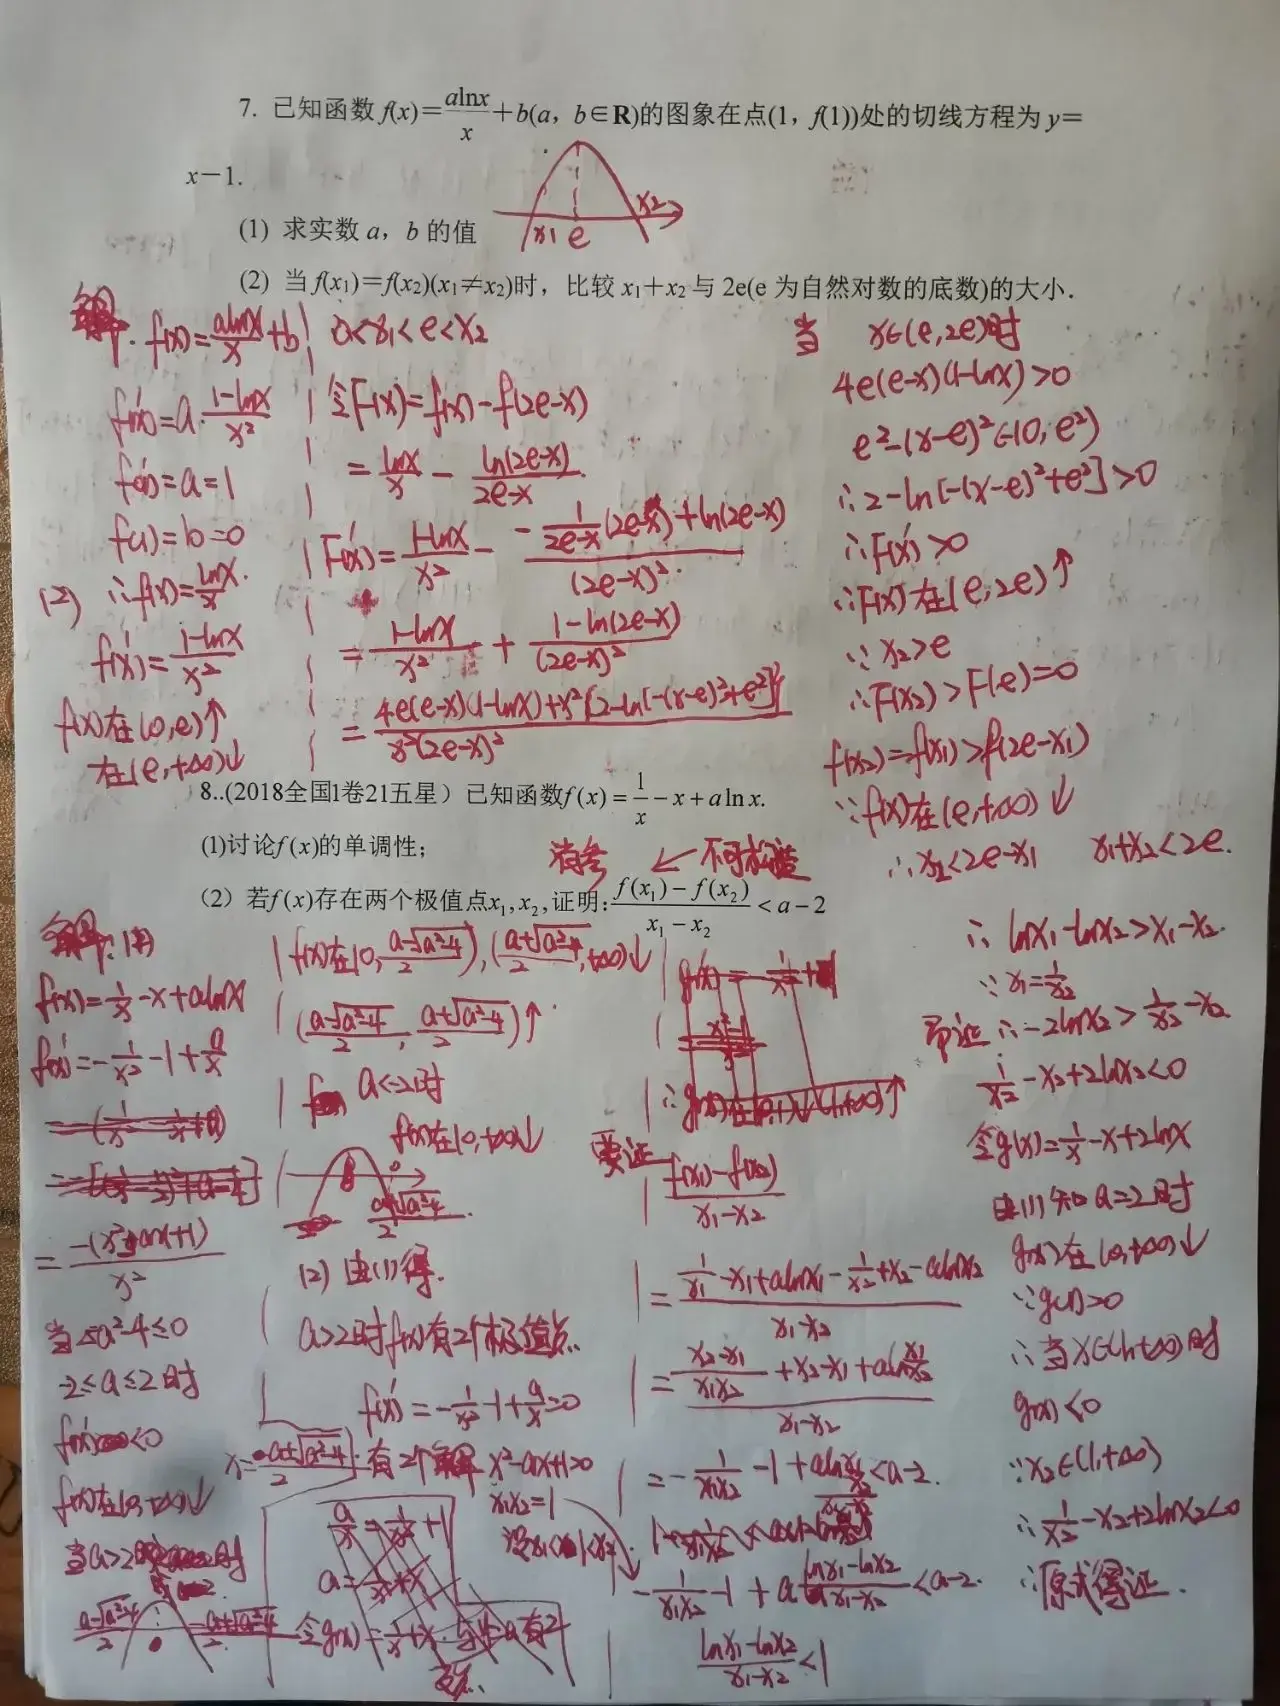 7. 已知函数 f(x)=alnx/x+b(a，b∈R)的图象在点(1，f(1))处的切线方程为 y=
x－1.
(1) 求实数 a，b 的值
(2) 当 f(x₁)=f(x₂)(x₁≠x₂)时，比较 x₁+x₂ 与 2e(e 为自然对数的底数)的大小.
x₁ e x₂
解. f(x)=alnx/x+b
f'(x)=a·(1-lnx)/x²
f'(1)=a=1
f(1)=b=0
(2) ∴f(x)=lnx/x.
f'(x)=(1-lnx)/x²
f(x)在(0,e)↑
在(e,+∞)↓
0<x₁<e<x₂
令F(x)=f(x)-f(2e-x)
=lnx/x - ln(2e-x)/(2e-x)
F'(x)=(1-lnx)/x² - (-1/(2e-x)(2e-x)+ln(2e-x))/(2e-x)²
=(1-lnx)/x² + (1-ln(2e-x))/(2e-x)²
=(4e(e-x)(1-lnx)+x²{2-ln[-(x-e)²+e²]})/(x²(2e-x)²)
当 x∈(e,2e)时
4e(e-x)(1-lnx)>0
e²-(x-e)²∈(0,e²)
∴2-ln[-(x-e)²+e²]>0
∴F'(x)>0
∴F(x)在(e,2e)↑
∵x₂>e
∴F(x₂)>F(e)=0
f(x₂)=f(x₁)>f(2e-x₂)
∵f(x)在(e,+∞)↓
∴x₂<2e-x₁ x₁+x₂<2e.
8..(2018全国1卷21五星）已知函数f(x)=1/x-x+alnx.
(1)讨论f(x)的单调性；
（2）若f(x)存在两个极值点x₁,x₂,证明:(f(x₁)-f(x₂))/(x₁-x₂)<a-2
解: (1)
f(x)=1/x-x+alnx
f'(x)=-1/x²-1+a/x
=-(x²-ax+1)/x²
当△=a²-4≤0
-2≤a≤2时
f'(x)<0
f(x)在(0,+∞)↓
当a>2时
f(x)在(0,(a-√(a²-4))/2),((a+√(a²-4))/2,+∞)↓
((a-√(a²-4))/2,(a+√(a²-4))/2)↑
a<-2时
f(x)在(0,+∞)↓
(2) 由(1)得.
a>2时f(x)有2个极值点.
f'(x)=-1/x²-1+a/x=0
有2个解 x²-ax+1=0
x₁x₂=1
设x₁<1<x₂
要证
(f(x₁)-f(x₂))/(x₁-x₂)
=(1/x₁-x₁+alnx₁-1/x₂+x₂-alnx₂)/(x₁-x₂)
=((x₂-x₁)/(x₁x₂)+x₂-x₁+aln(x₁/x₂))/(x₁-x₂)
-1/(x₁x₂)-1+a(lnx₁-lnx₂)/(x₁-x₂)<a-2.
(lnx₁-lnx₂)/(x₁-x₂)<1
∴lnx₁-lnx₂>x₁-x₂.
∵x₁=1/x₂
即证∴-2lnx₂>1/x₂-x₂
1/x₂-x₂+2lnx₂<0
令g(x)=1/x-x+2lnx
由(1)知a=2时
g(x)在(0,+∞)↓
∵g(1)=0
∴当x∈(1,+∞)时
g(x)<0
∵x₂∈(1,+∞)
∴1/x₂-x₂+2lnx₂<0
∴原式得证.